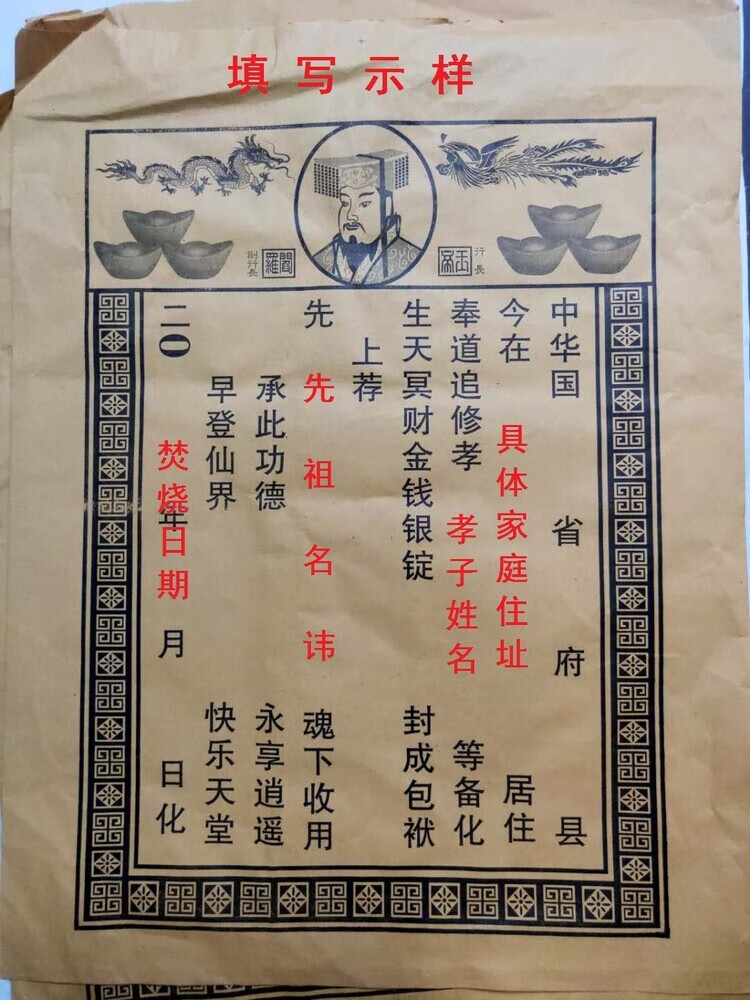 填写示样
行長
副行長
閻羅
中华国 省 府 县
今在 具体家庭住址 居住
奉道追修孝 孝子姓名 等备化
生天冥财金钱银锭 封成包袱
上荐
先 先祖名讳 魂下收用
承此功德 永享逍遥
早登仙界 快乐天堂
二0 年 月 日化
焚烧日期